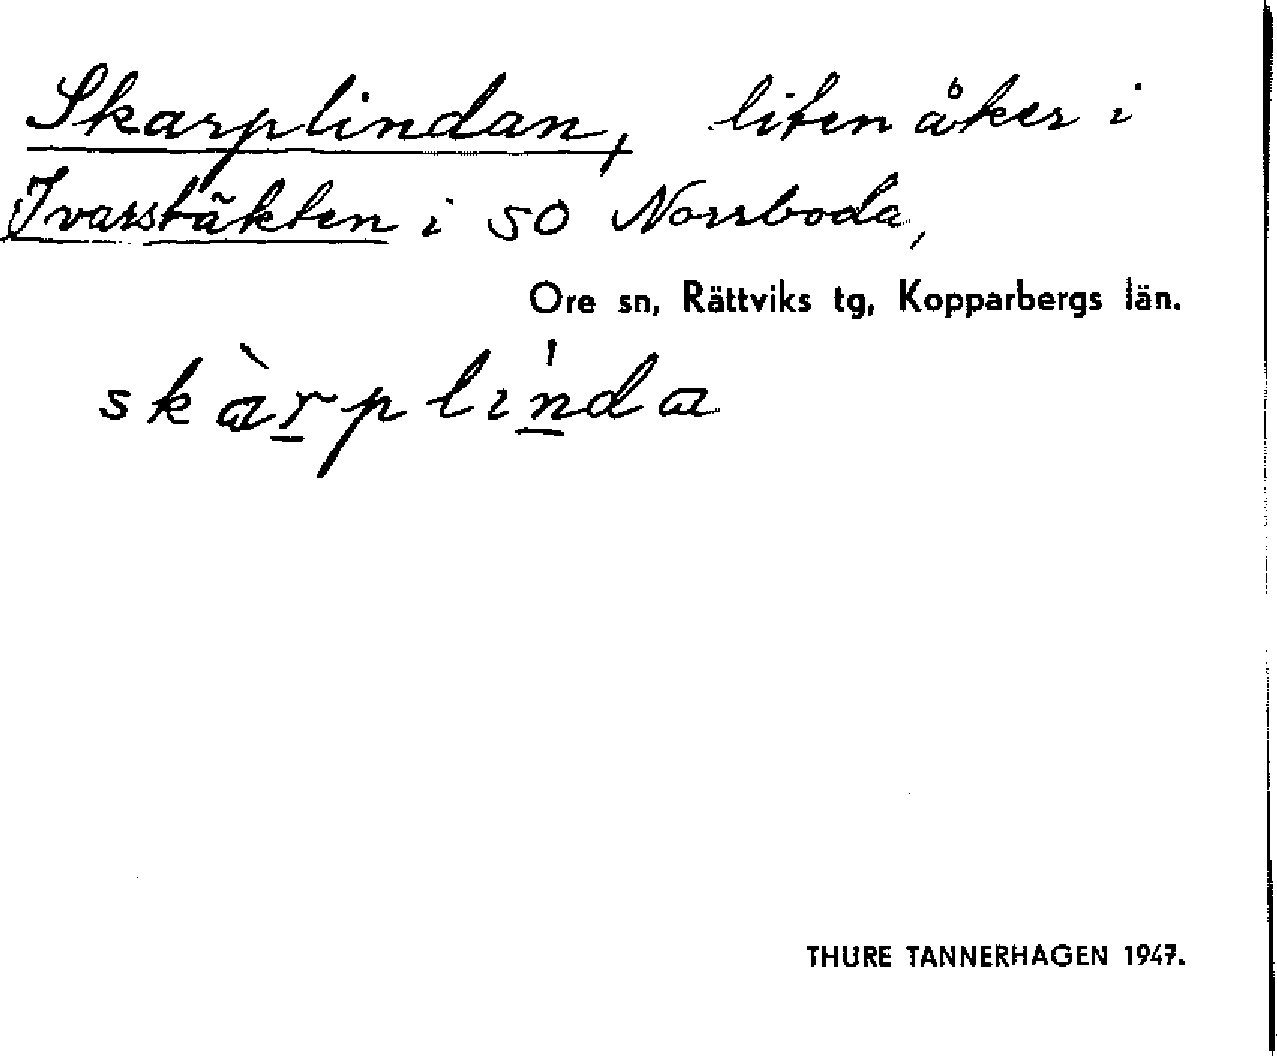 Skarplindan, liten åker i
Ivarstäkten i SO Norrboda,
Ore sn, Rättviks tg, Kopparbergs län.
skàrplínda
THURE TANNERHAGEN 1947.